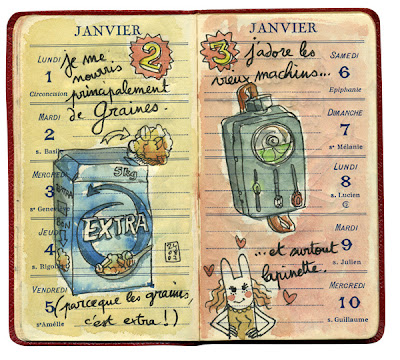 JANVIER
LUNDI
1
Circoncision
MARDI
2
s. Basile
MERCREDI
3
ste Geneviève
JEUDI
4
s. Rigobert
VENDREDI
5
s'Amélie
2
je me
nourris
principalement
de graines.
5kg
EXTRA
EXTRA
BON
24
08
03
(parceque les graines,
c'est extra !)
JANVIER
SAMEDI
6
Epiphanie
DIMANCHE
7
s' Mélanie
LUNDI
8
s. Lucien
MARDI
9
s. Julien
MERCREDI
10
s. Guillaume
3
j'adore les
vieux machins...
...et surtout
lapinette.